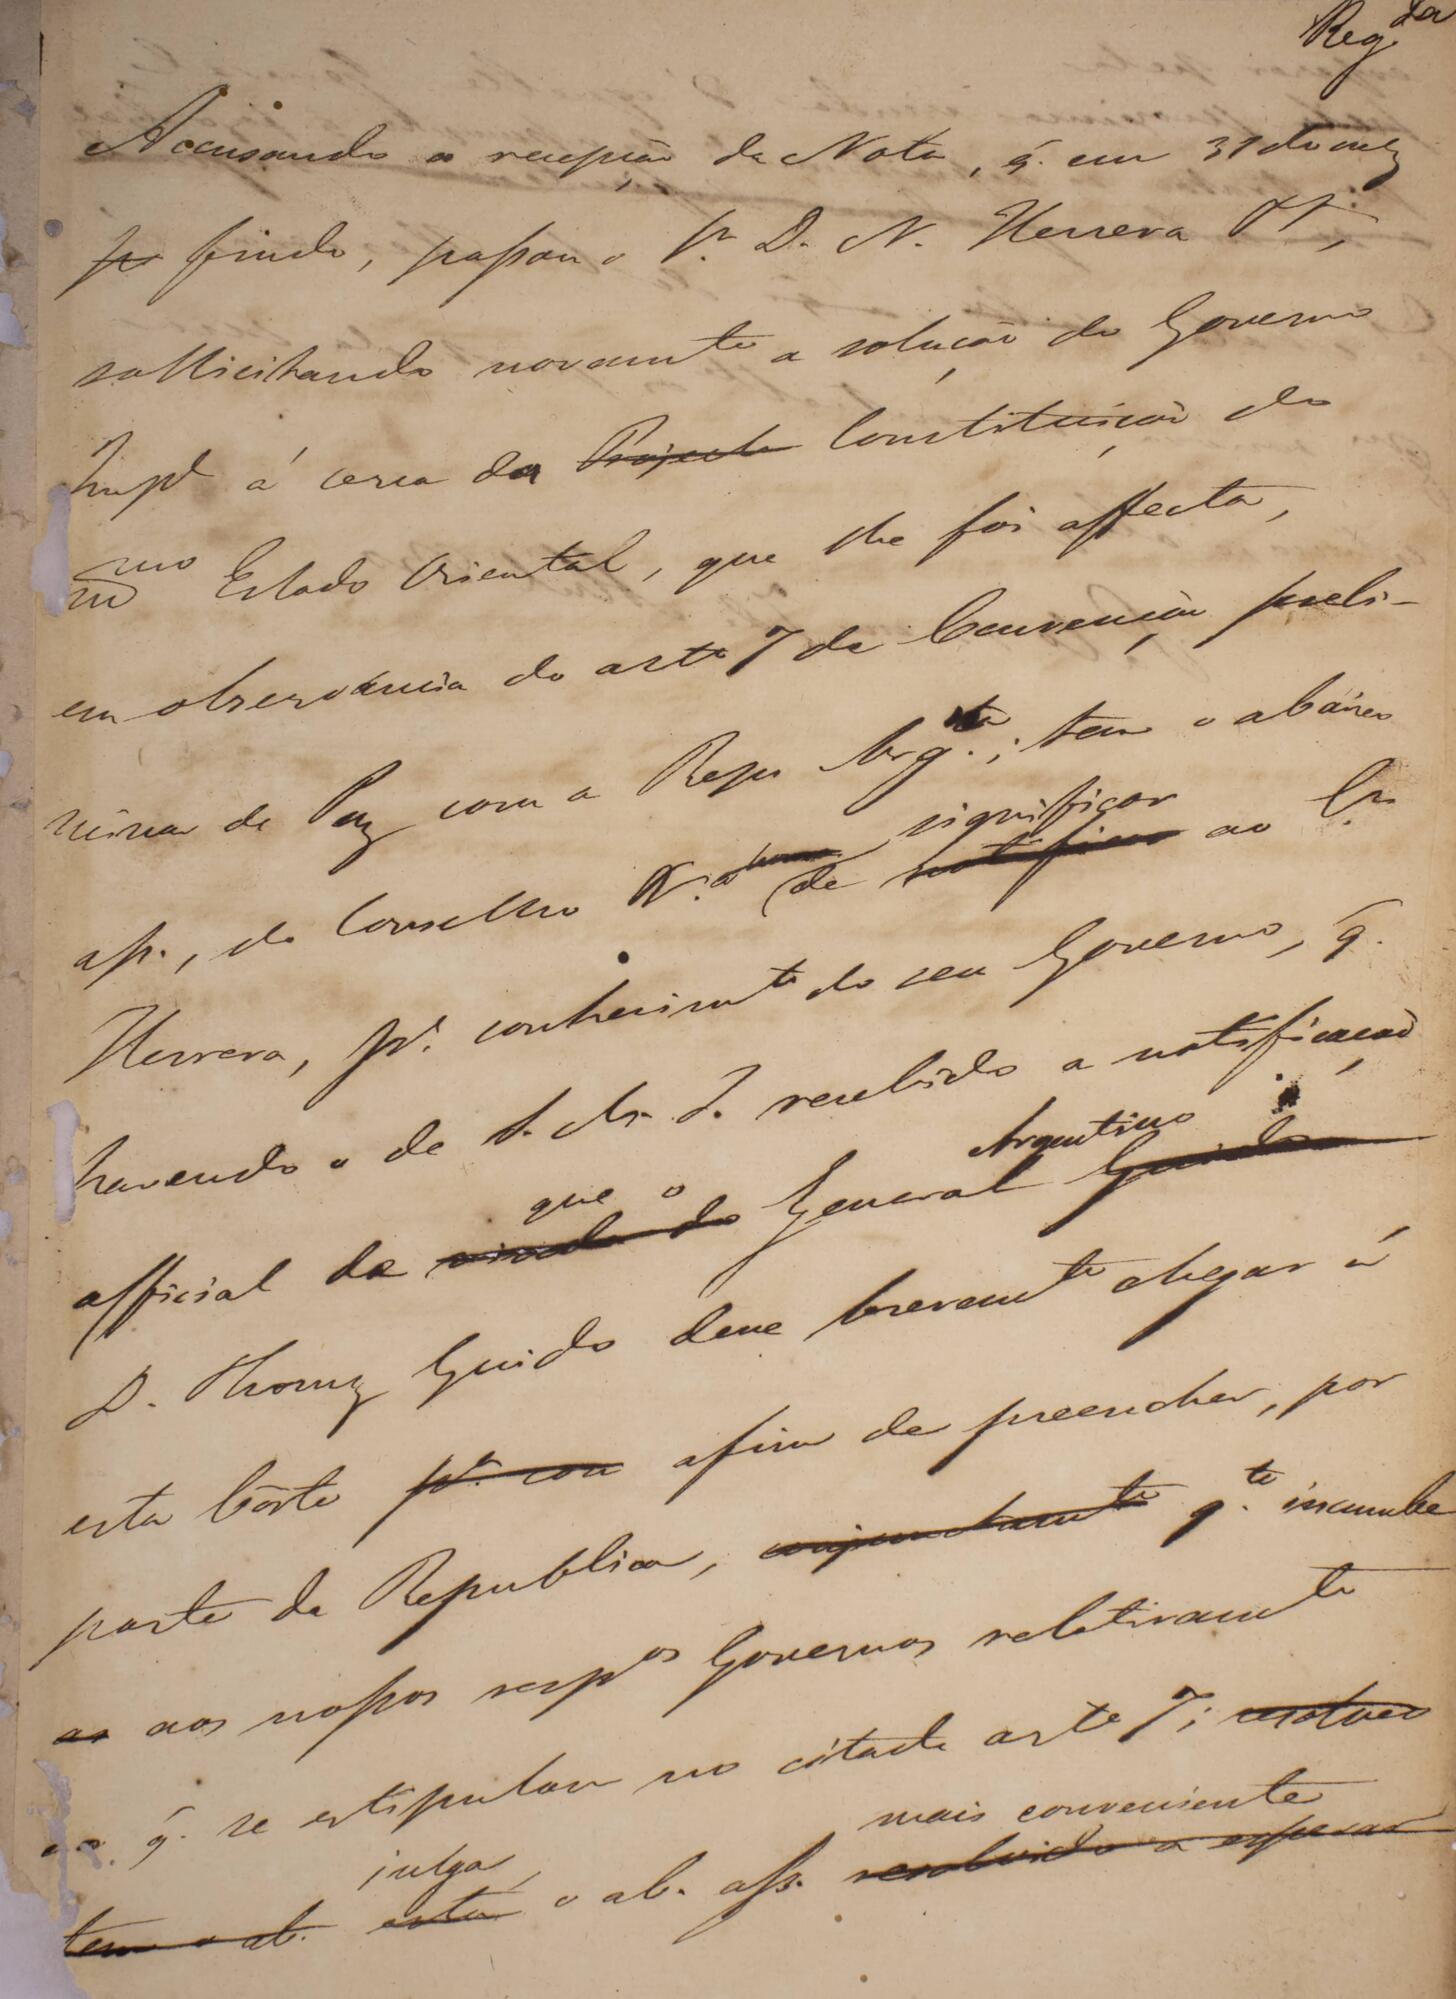 Reg.da
Accusando a recepção da Nota, q. em 31 do mez
p findo, passou o Sr. D. N. Herrera
sollicitando novamente a solução do Governo
Impl á cerca da Projecto Constituição do
mmo Estado Oriental, que lhe foi affecta,
em observancia do arto 7 da Convenção preli-
minar de Paz com a Repu Arg.ta; tem o abáixo
ass., do Conselho significar
de notificar ao Sr.
Herrera, pa. conhecimto do seu Governo, q.
havendo o de S. M. I. recebido a notificação
Argentino
official de vinda do General Guido
que o
D. Thomaz Guido deve brevemte chegar á
esta Côrte pa. con afim de preencher, por
parte da Republica, conjunctamte q.to incumbe
as aos nossos respos Governos relativamte
ao q. se estipulou no citado arto 7; resolveo
mais conveniente
julga,
tem o ab. está o ab. ass. resolvido a esperar